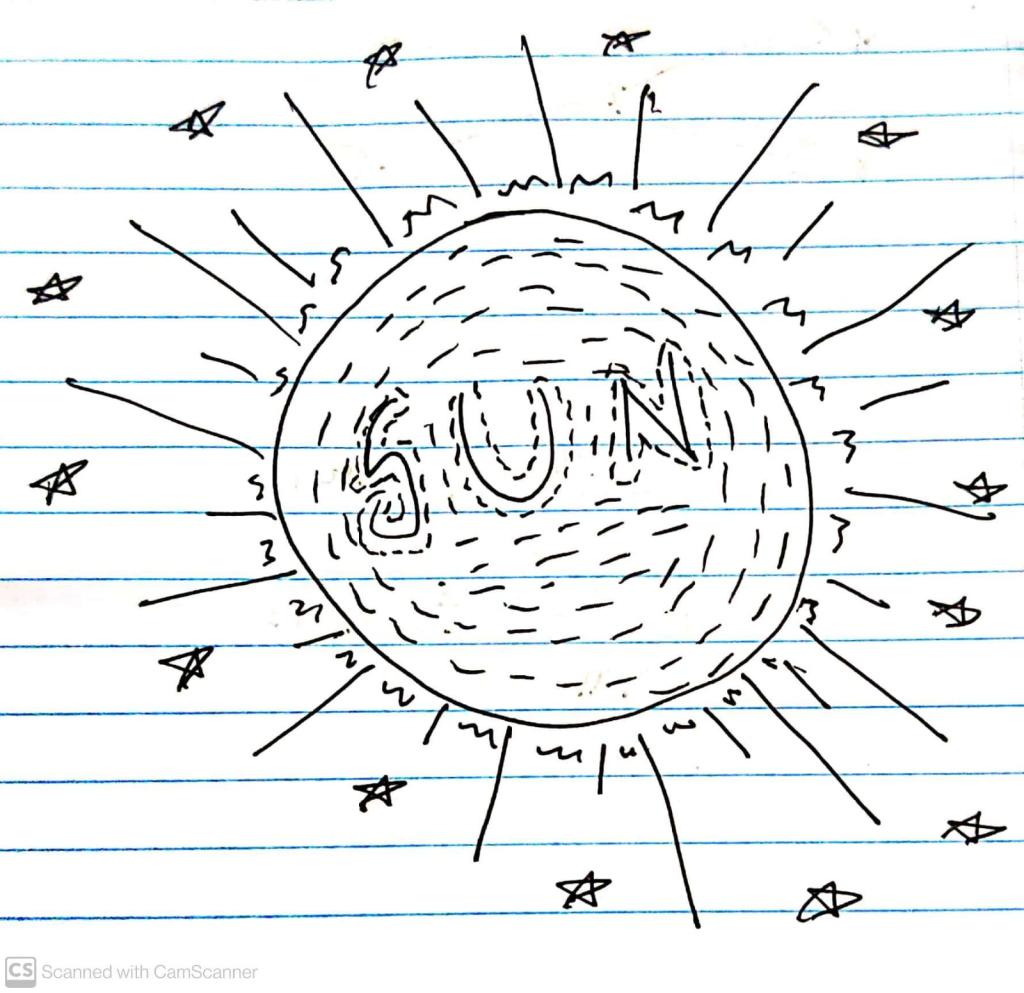 SUN
CS Scanned with CamScanner